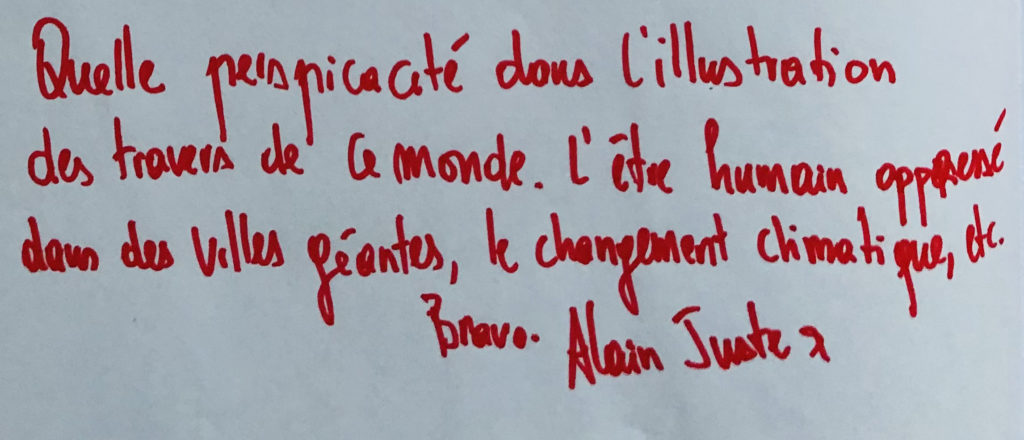 Quelle perspicacité dans l'illustration
des travers de ce monde. L'être humain oppressé
dans des villes géantes, le changement climatique, etc.
Bravo. Alain Juste